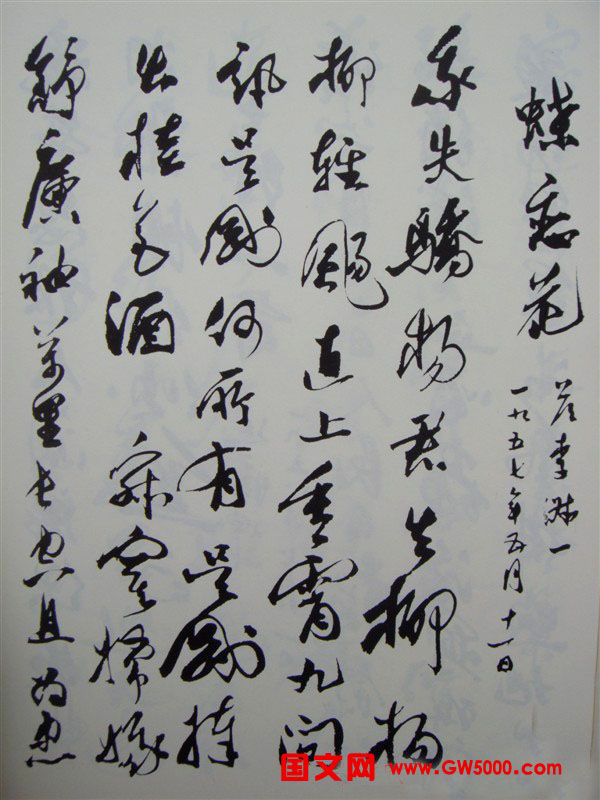 蝶恋花
答李淑一
一九五七年五月十一日
我失驕楊君失柳楊
柳輕颺直上重霄九問
訊吴剛何所有吴剛捧
出桂花酒寂寞嫦娥
舒廣袖萬里長空且為忠
国文网 www.GW5000.com